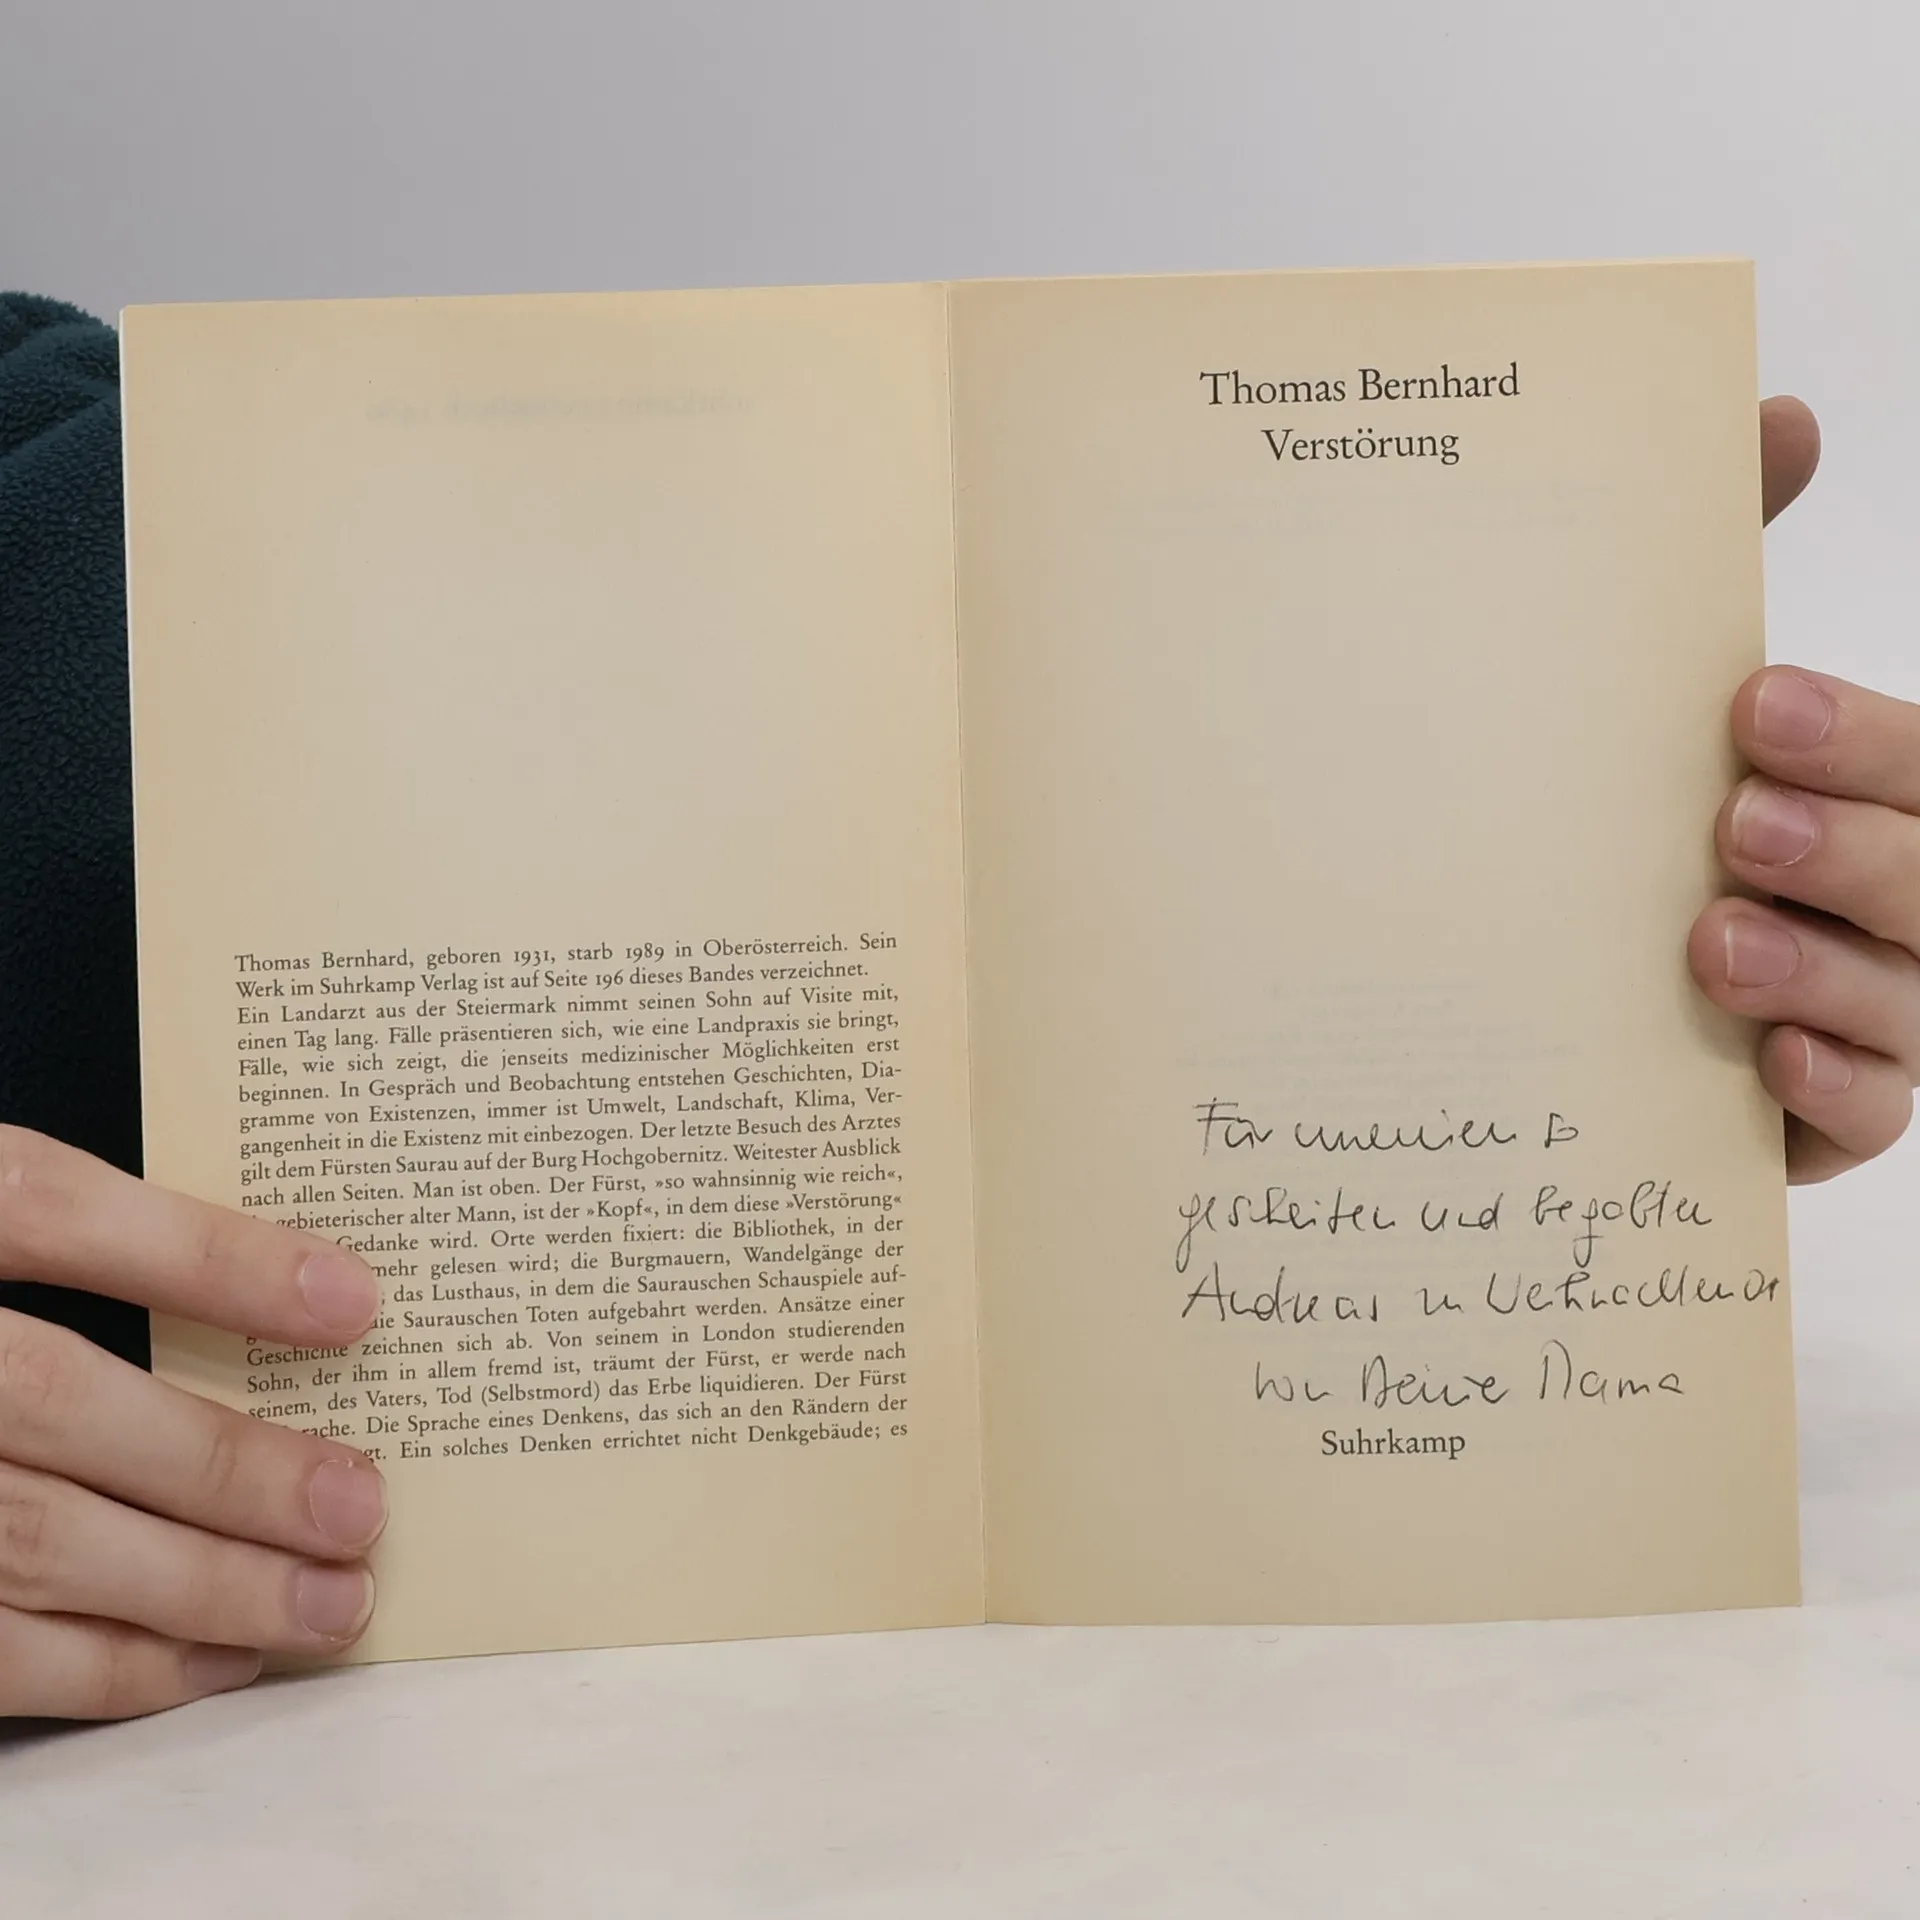 Thomas Bernhard, geboren 1931, starb 1989 in Oberösterreich. Sein
Werk im Suhrkamp Verlag ist auf Seite 196 dieses Bandes verzeichnet.
Ein Landarzt aus der Steiermark nimmt seinen Sohn auf Visite mit,
einen Tag lang. Fälle präsentieren sich, wie eine Landpraxis sie bringt,
Fälle, wie sich zeigt, die jenseits medizinischer Möglichkeiten erst
beginnen. In Gespräch und Beobachtung entstehen Geschichten, Dia-
gramme von Existenzen, immer ist Umwelt, Landschaft, Klima, Ver-
gangenheit in die Existenz mit einbezogen. Der letzte Besuch des Arztes
gilt dem Fürsten Saurau auf der Burg Hochgobernitz. Weitester Ausblick
nach allen Seiten. Man ist oben. Der Fürst, »so wahnsinnig wie reich«,
gebieterischer alter Mann, ist der »Kopf«, in dem diese »Verstörung«
Gedanke wird. Orte werden fixiert: die Bibliothek, in der
mehr gelesen wird; die Burgmauern, Wandelgänge der
; das Lusthaus, in dem die Saurauschen Schauspiele auf-
die Saurauschen Toten aufgebahrt werden. Ansätze einer
Geschichte zeichnen sich ab. Von seinem in London studierenden
Sohn, der ihm in allem fremd ist, träumt der Fürst, er werde nach
seinem, des Vaters, Tod (Selbstmord) das Erbe liquidieren. Der Fürst
rache. Die Sprache eines Denkens, das sich an den Rändern der
gt. Ein solches Denken errichtet nicht Denkgebäude; es
Thomas Bernhard
Verstörung
Für meinen so
gescheiten und begabten
Andreas zu Weihnachten
von Deine Mama
Suhrkamp